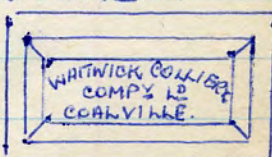 WHITWICK COLLIERY
COMPY LD
COALVILLE.